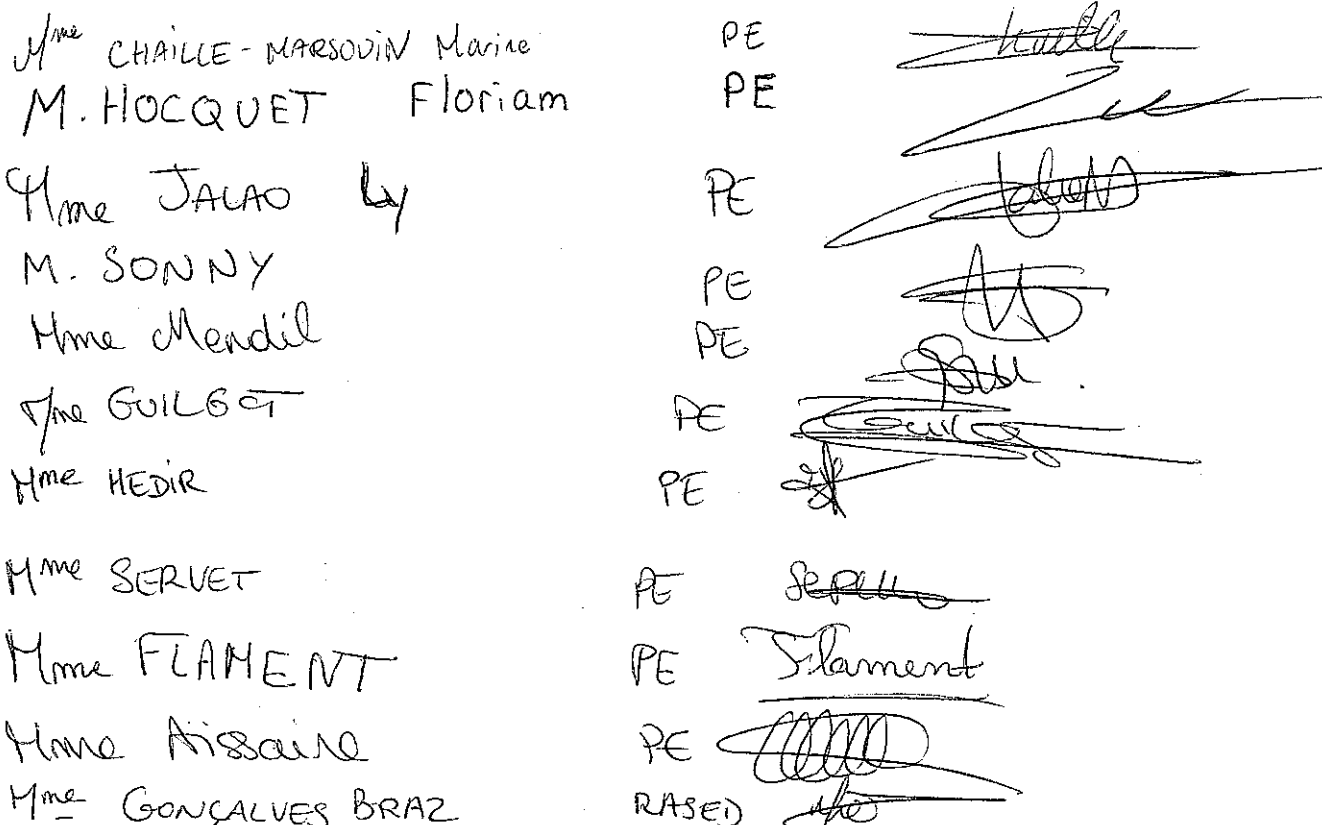 Mme CHAILLE-MARSOUIN Marine PE
M. HOCQUET Floriam PE
Mme JALAO Ly PE
M. SONNY PE
Mme Mendil PE
Mme GUILGOT PE
Mme HEDIR PE
Mme SERVET PE
Mme FLAMENT PE Flament
Mme Aïssaire PE
Mme GONÇALVES BRAZ RASED